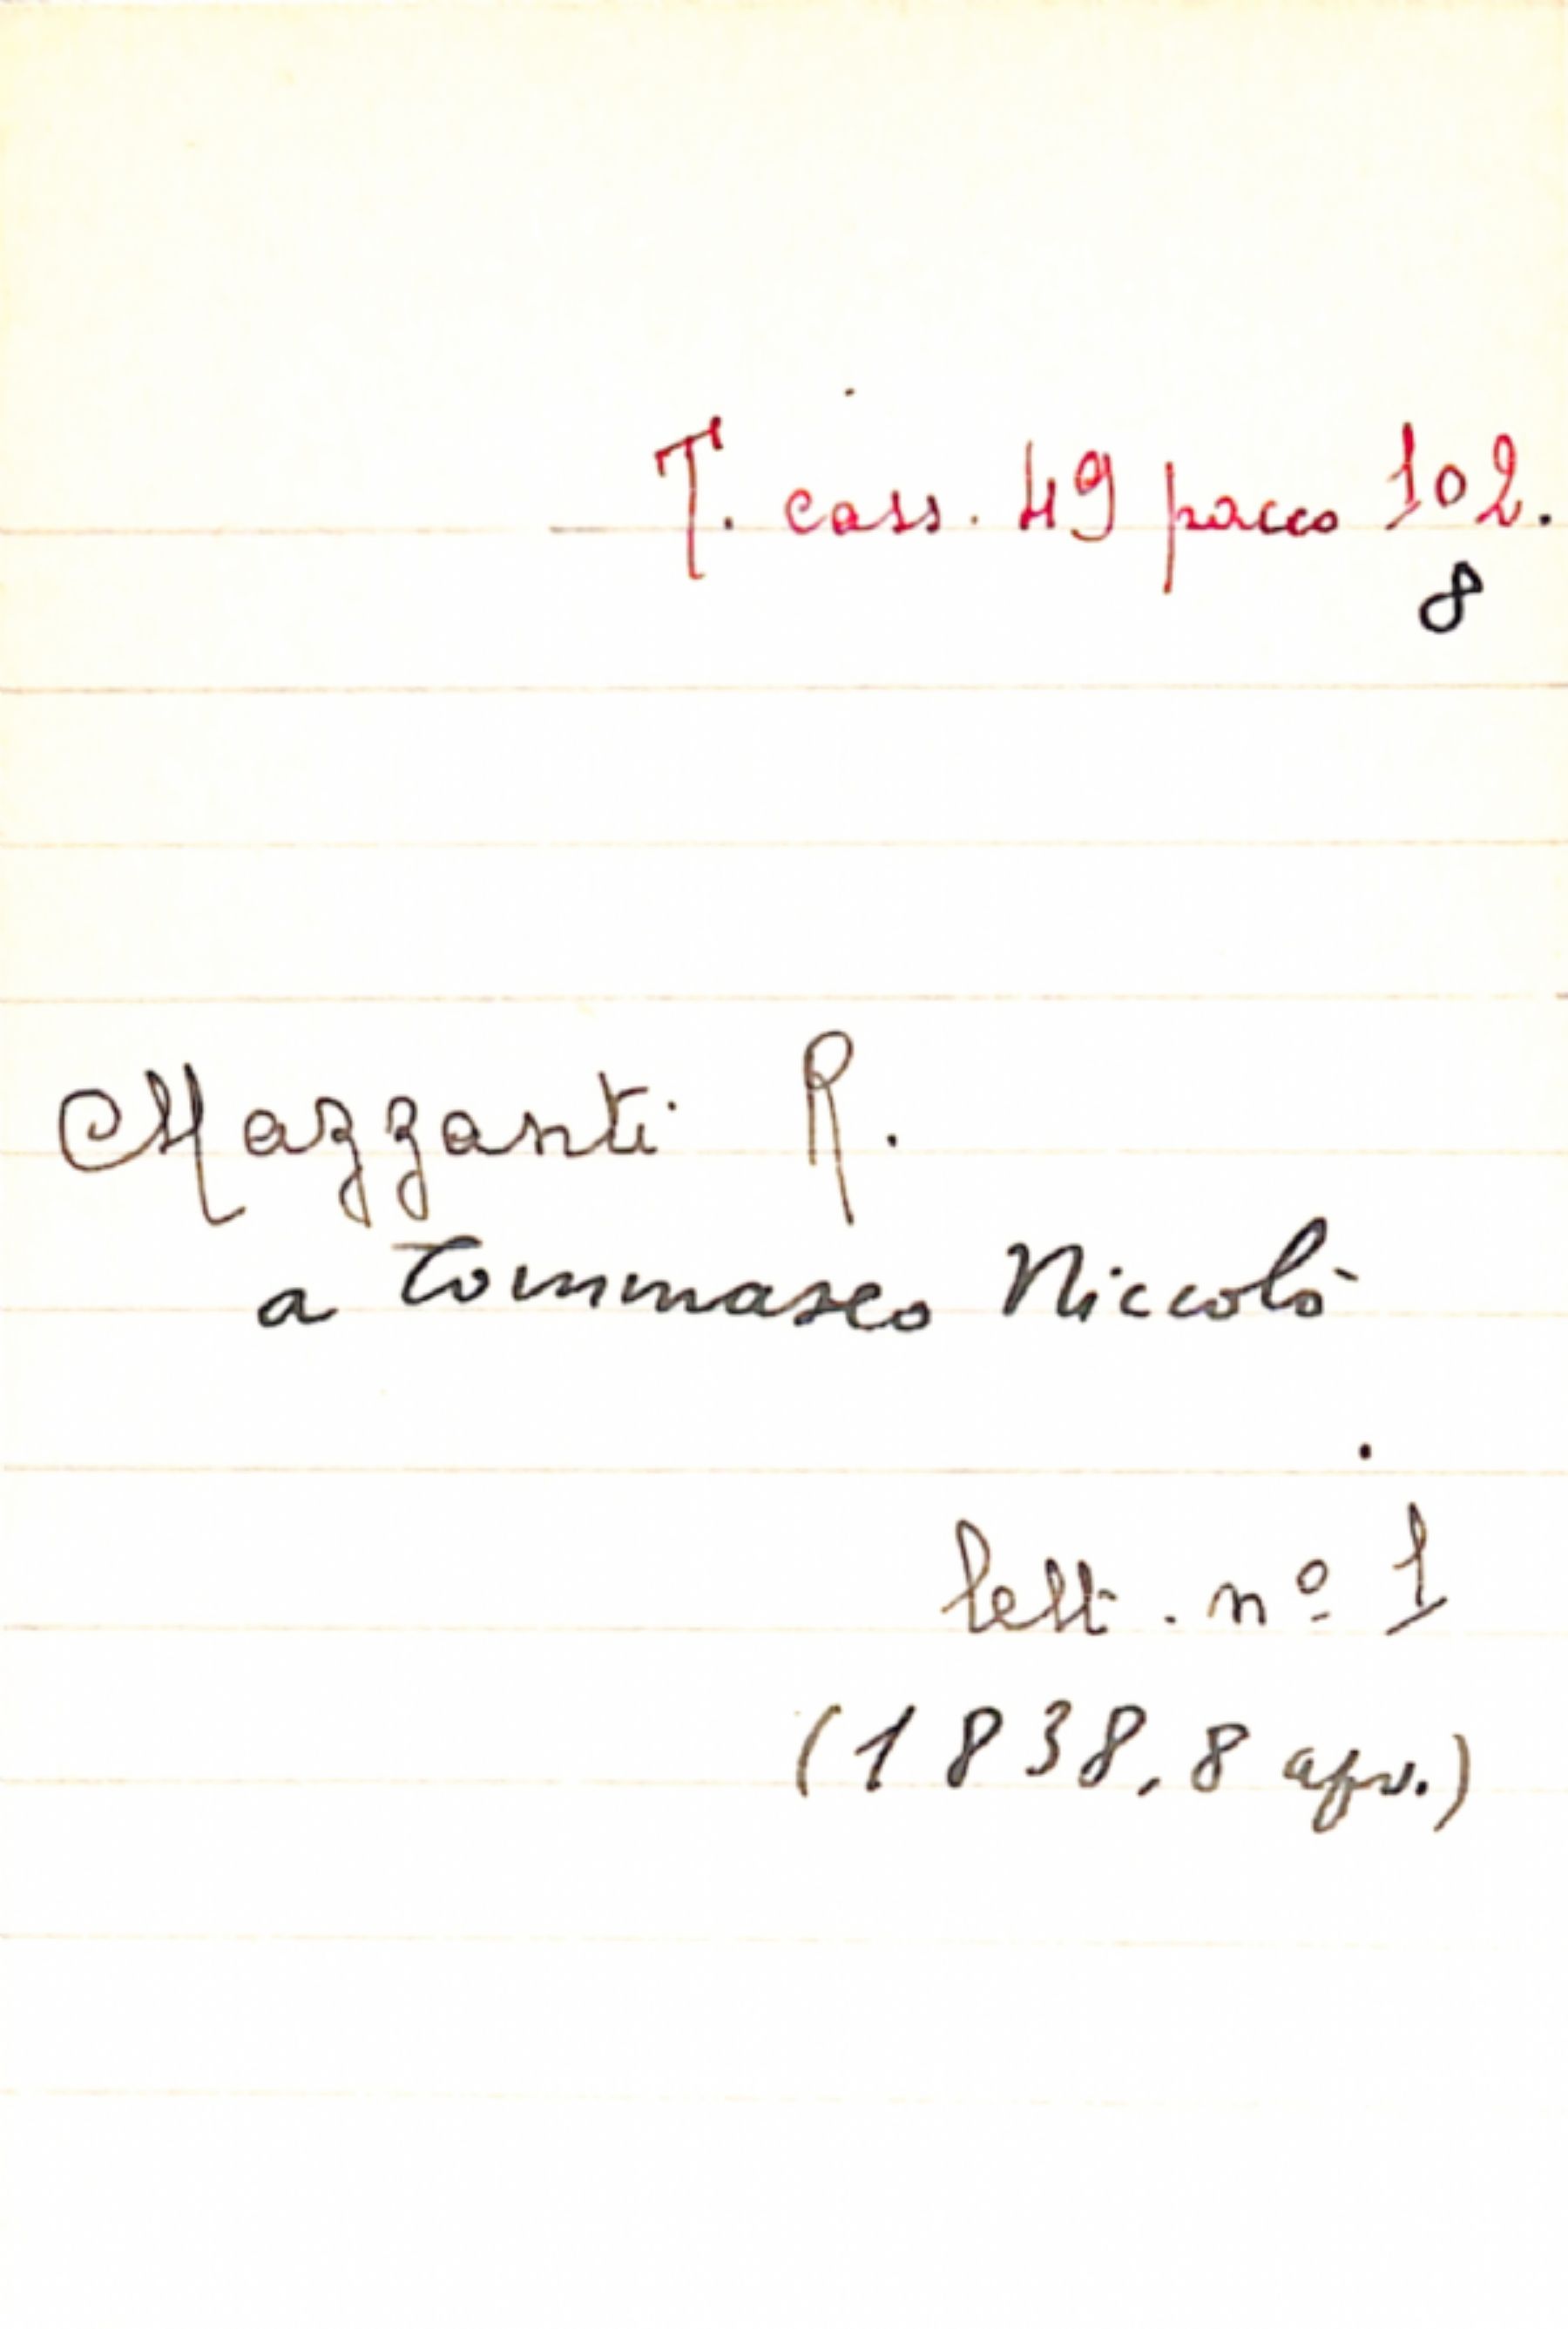 T. cass. 49 pacco 102.
8
Mazzanti R.
a Tommaseo Niccolò
lett. nº 1
(1838, 8 apr.)